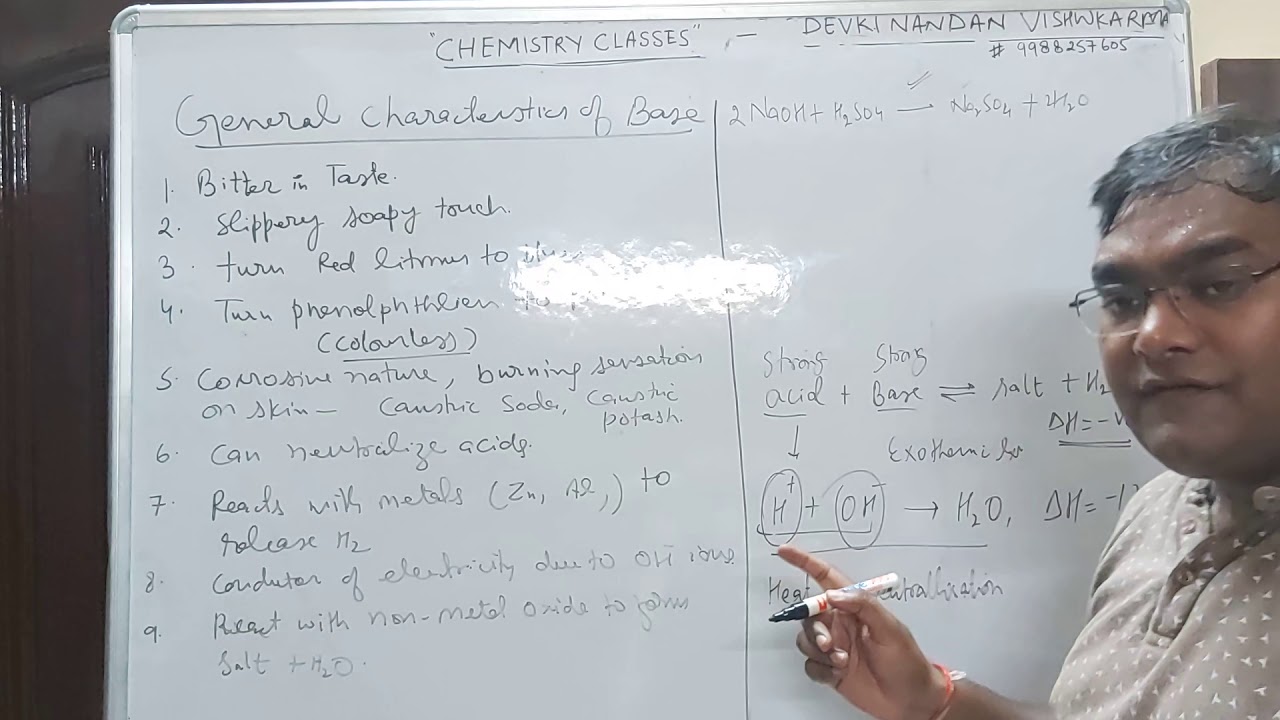 "CHEMISTRY CLASSES" - DEVKI NANDAN VISHWKARMA
# 9988257605
General Characterstics of Base
1. Bitter in Taste.
2. Slippery soapy touch.
3. turn Red litmus to
4. Turn phenolphthlein to
(colourless)
5. Corrosive nature, burning sensation
on skin - Caustric Soda, Caustric
potash.
6. Can neutralize acids.
7. Reacts with metals (Zn, Al,) to
release H2
8. Condutor of electricity due to OH⁻ ions.
9. React with non-metal oxide to form
Salt + H2O.
2NaOH + H2SO4 → Na2SO4 + 2H2O
Strong Strong
acid + Base ⇌ salt + H2
ΔH = -
Exothermic
H⁺ + OH⁻ → H2O, ΔH = -1
Heat